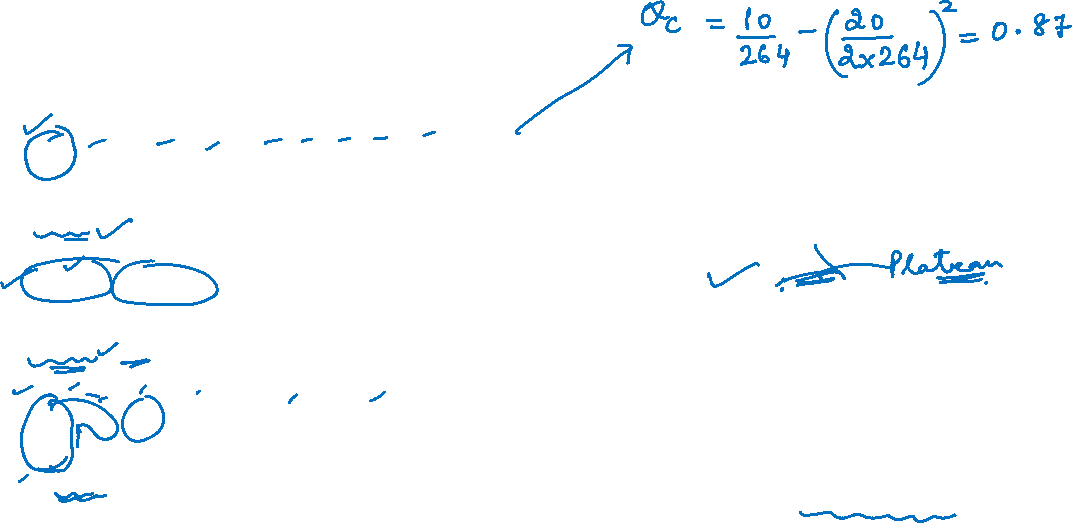 Qc = 10/264 - (20/2x264)² = 0.87
Plateau